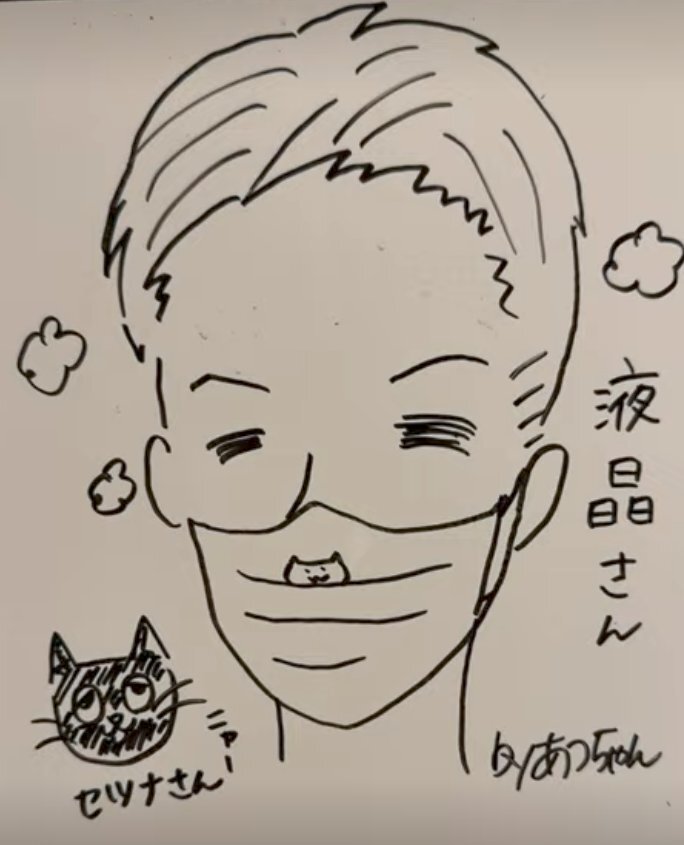 液晶さん
ニャー
セツナさん
byあっちゃん